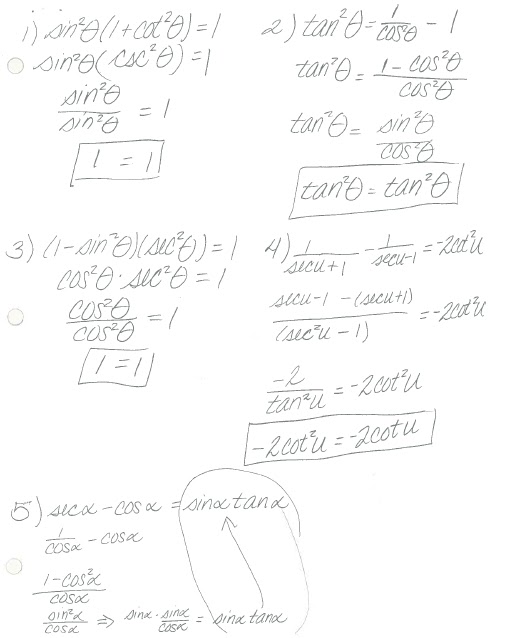 1) sin²θ(1+cot²θ)=1
sin²θ(csc²θ)=1
sin²θ/sin²θ = 1
1 = 1
2) tan²θ = 1/cos²θ - 1
tan²θ = (1-cos²θ)/cos²θ
tan²θ = sin²θ/cos²θ
tan²θ = tan²θ
3) (1-sin²θ)(sec²θ)=1
cos²θ·sec²θ = 1
cos²θ/cos²θ = 1
1 = 1
4) 1/(sec u+1) - 1/(sec u-1) = -2cot²u
(sec u-1 -(sec u+1))/(sec²u - 1) = -2cot²u
-2/tan²u = -2cot²u
-2cot²u = -2cot u
5) secα - cosα = sinα tanα
1/cosα - cosα
(1-cos²α)/cosα
sin²α/cosα ⇒ sinα · sinα/cosα = sinα tanα